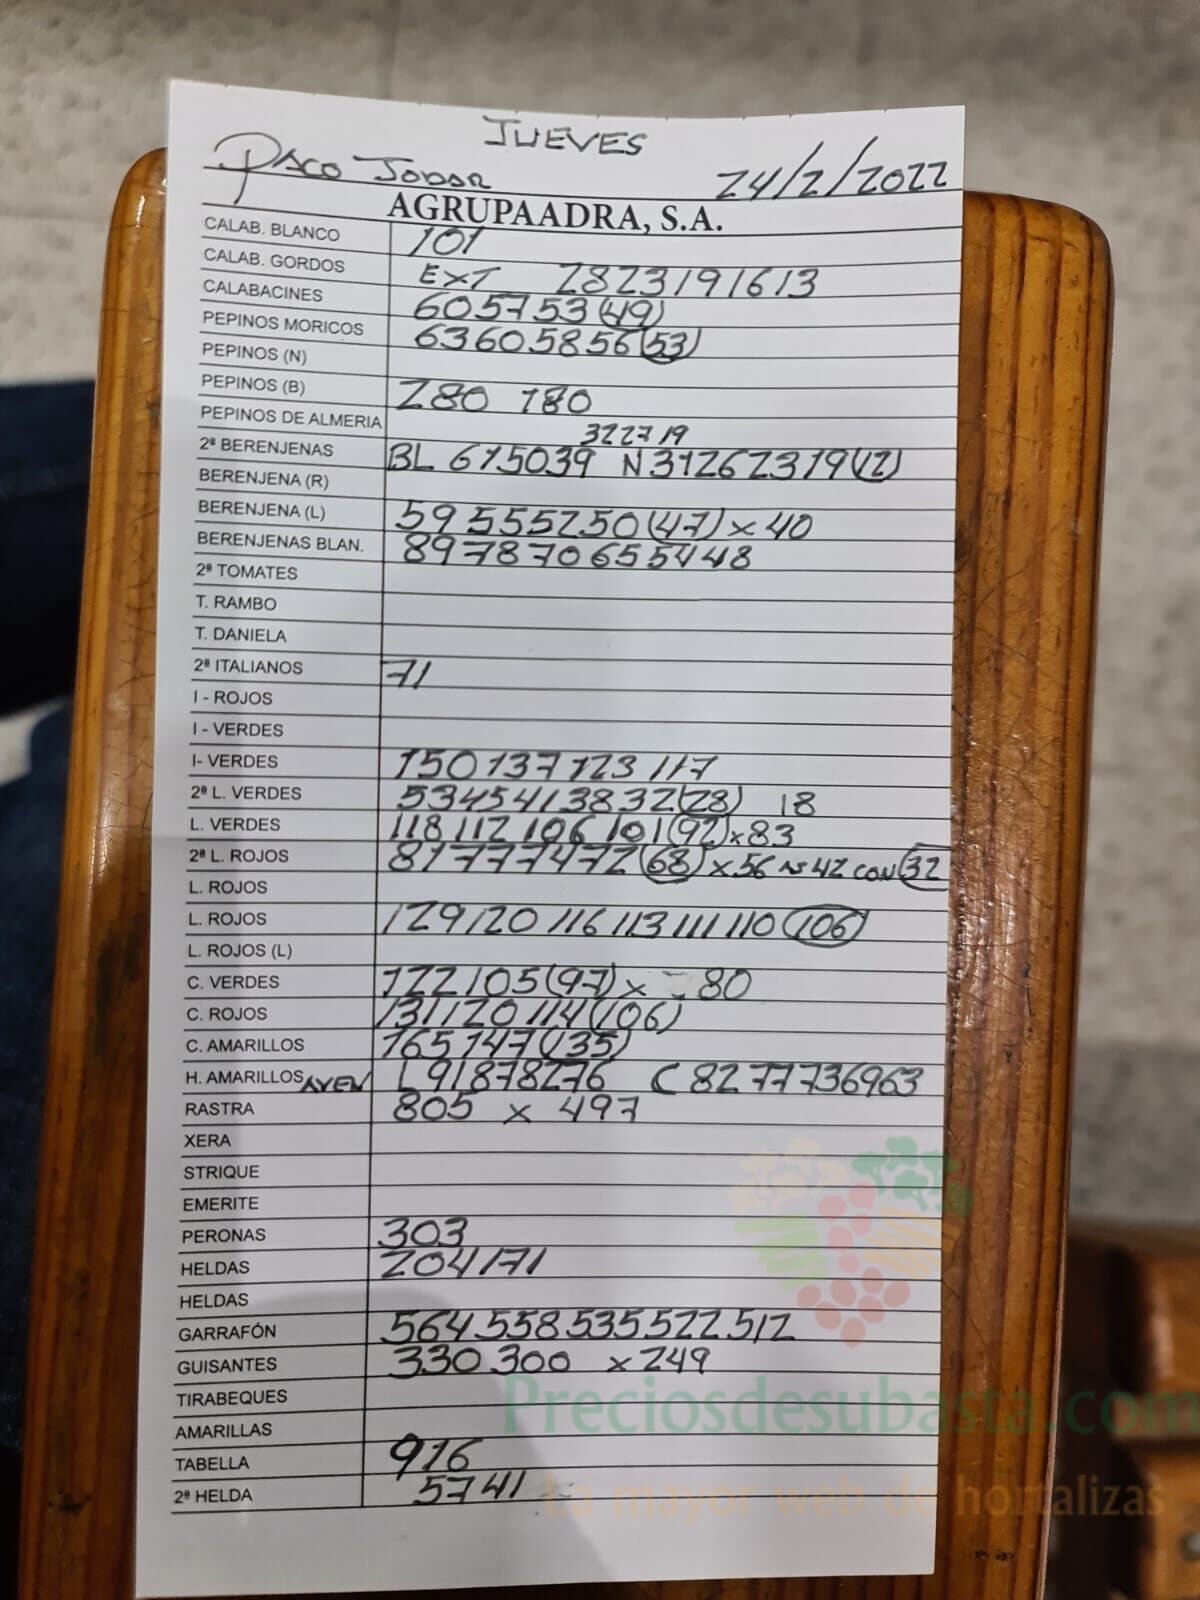 JUEVES
PACO JODAR 24/2/2022
AGRUPAADRA, S.A.
CALAB. BLANCO 101
CALAB. GORDOS EXT 2823191613
CALABACINES 605753(49)
PEPINOS MORICOS 63605856(53)
PEPINOS (N)
PEPINOS (B) 280 180
PEPINOS DE ALMERIA 322719
2ª BERENJENAS BL 615039 N31262319(12)
BERENJENA (R)
BERENJENA (L) 59555250(47)x40
BERENJENAS BLAN. 897870655448
2ª TOMATES
T. RAMBO
T. DANIELA
2ª ITALIANOS 71
I - ROJOS
I - VERDES
I- VERDES 150137123117
2ª L. VERDES 5345413832(28) 18
L. VERDES 118 112 106 101(92)x83
2ª L. ROJOS 8177777472(68)x56 42 CON 32
L. ROJOS
L. ROJOS 129120 116 113 111 110(106)
L. ROJOS (L)
C. VERDES 122105(97)x 80
C. ROJOS 131120114(106)
C. AMARILLOS 165147(135)
H. AMARILLOS AVEN L91878276 C8277736963
RASTRA 805 x 497
XERA
STRIQUE
EMERITE
PERONAS 303
HELDAS 204171
HELDAS
GARRAFÓN 564558535522512
GUISANTES 330300 x249
TIRABEQUES
AMARILLAS
TABELLA 916
2ª HELDA 5741
Preciosdesubasta.com
La mayor web de hortalizas